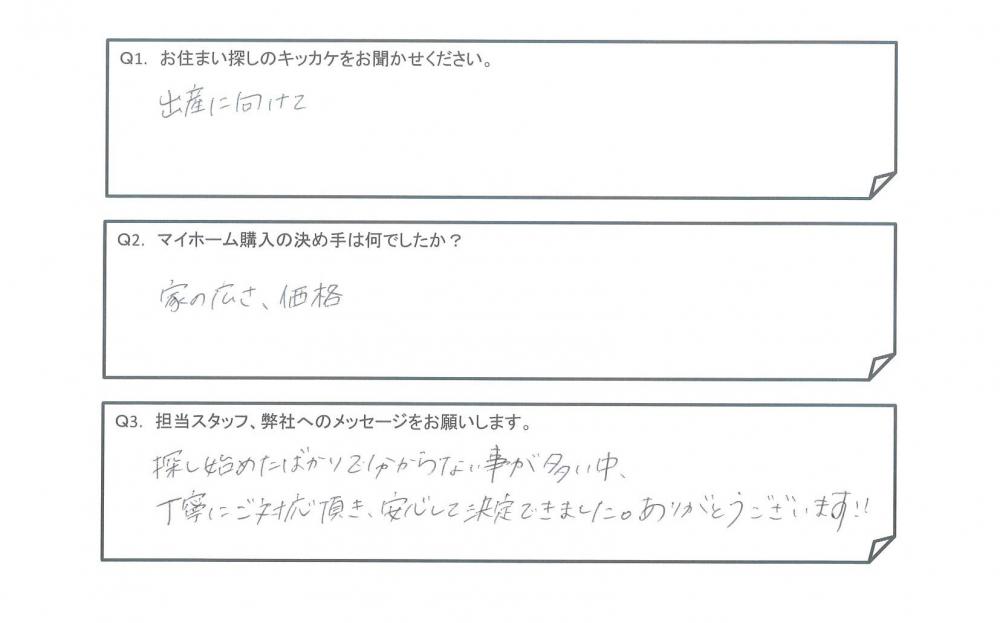 Q1. お住まい探しのキッカケをお聞かせください。
出産に向けて
Q2. マイホーム購入の決め手は何でしたか？
家の広さ、価格
Q3. 担当スタッフ、弊社へのメッセージをお願いします。
探し始めたばかりで分からない事が多い中、
丁寧にご対応頂き、安心して決定できました。ありがとうございます!!